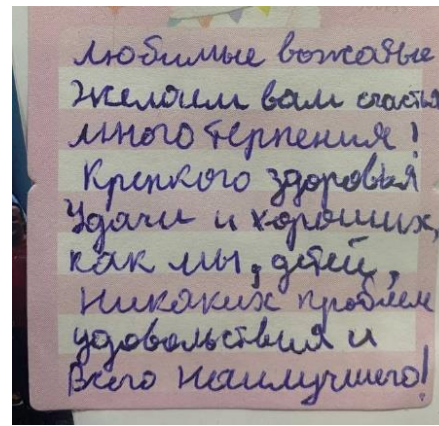 любимые вожатые
Желаем вам счастья
много терпения!
Крепкого здоровья
Удачи и хороших,
как мы, детей,
никаких проблем
удовольствия и
Всего наилучшего!